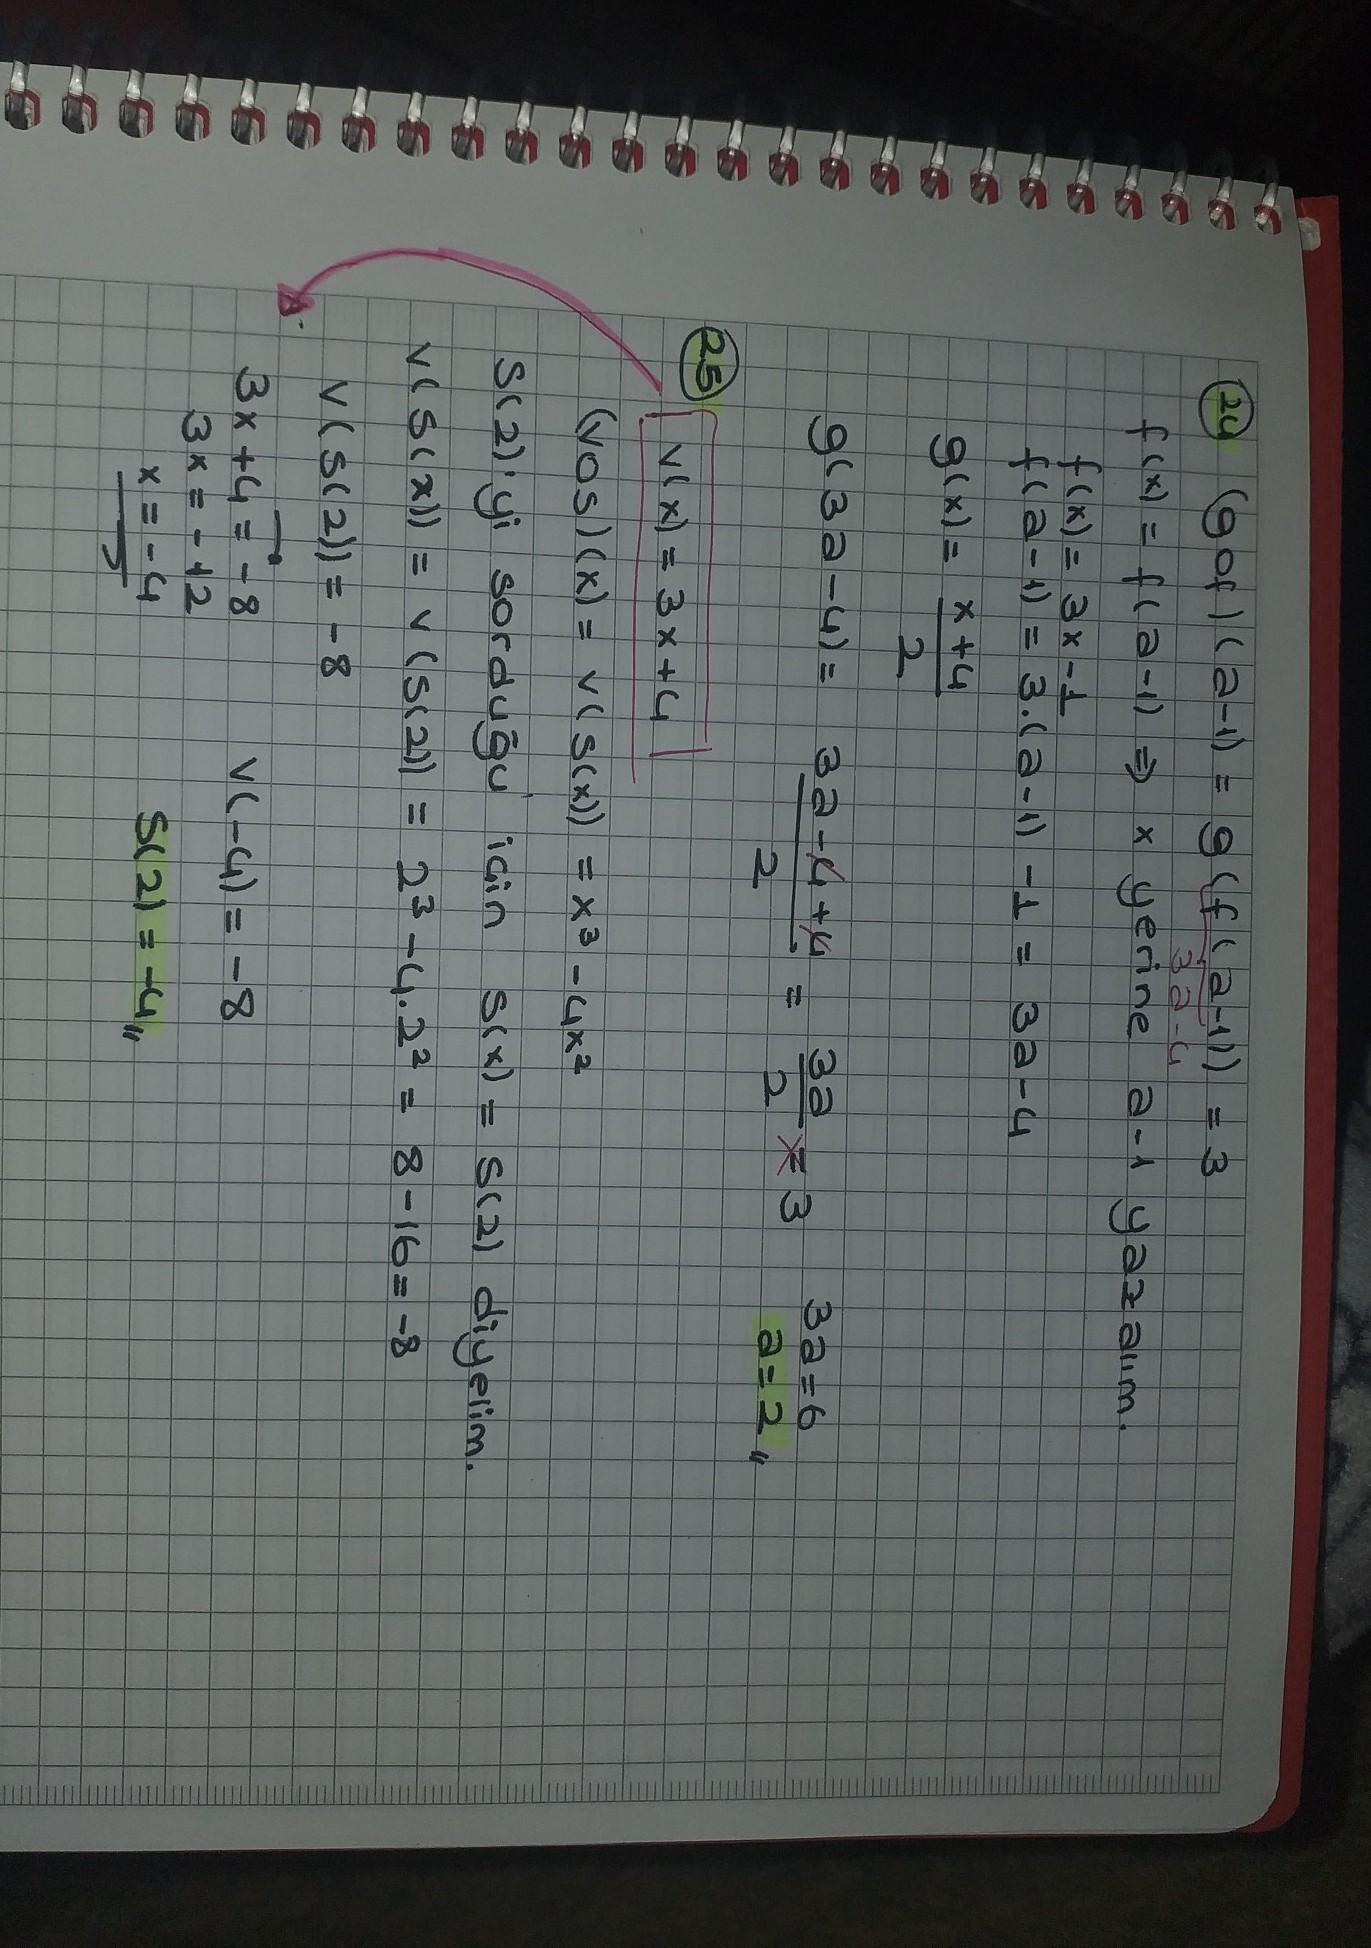 24 (gof)(a-1) = g(f(a-1)) = 3
3a-4
f(x) = f(a-1) ⇒ x yerine a-1 yazalım.
f(x) = 3x-1
f(a-1) = 3.(a-1) -1 = 3a-4
g(x) = x+4 / 2
g(3a-4) = 3a-4+4 / 2 = 3a / 2 = 3 3a=6
a=2 //
25 v(x) = 3x+4
(vos)(x) = v(s(x)) = x³ - 4x²
s(2)'yi sorduğu için s(x) = s(2) diyelim.
v(s(x)) = v(s(2)) = 2³ - 4.2² = 8-16 = -8
v(s(2)) = -8
3x+4 = -8 v(-4) = -8
3x = -12
x = -4 s(2) = -4 //